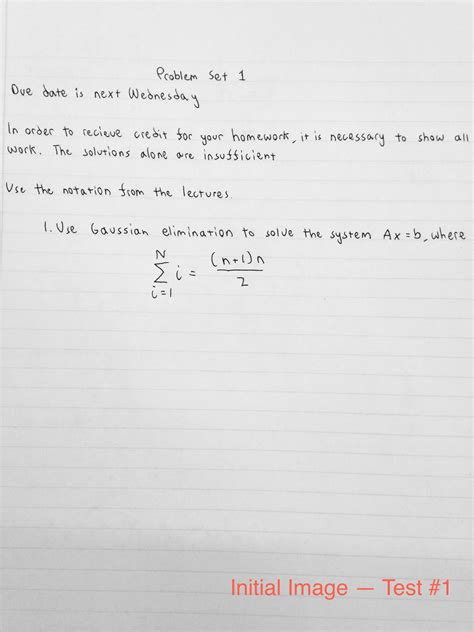 Problem Set 1
Due date is next Wednesday
In order to recieve credit for your homework, it is necessary to show all
work. The solutions alone are insufficient
Use the notation from the lectures.
1. Use Gaussian elimination to solve the system Ax=b, where
N
∑ i = (n+1)n / 2
i=1
Initial Image — Test #1